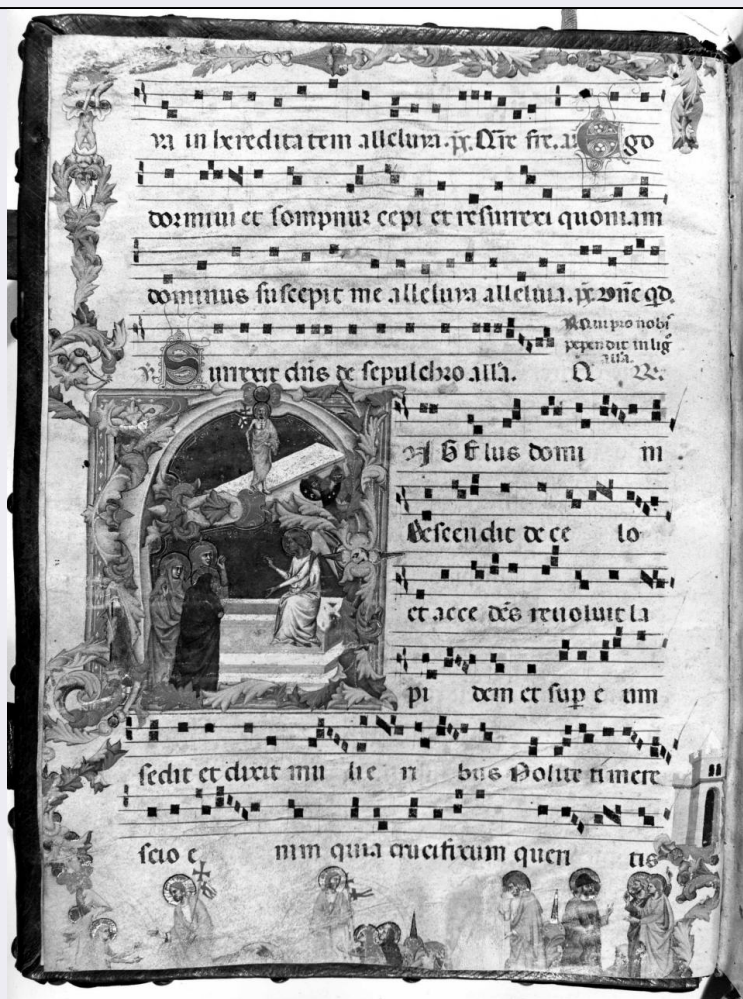 ra in hereditatem alleluya. ps. Dñe fre. añ Ego
dormiui et sompnum cepi et resurrexi quoniam
dominus suscepit me alleluya alleluia. ps. Dñe qd.
Surrexit dñs de sepulchro alla.
R. Qui pro nobis
pependit in lig
alla.
Angelus domini
descendit de celo
et accedēs reuoluit la
pidem et sup eum
sedit et dixit mulieribus Nolite timere
scio enim quia crucifixum queritis